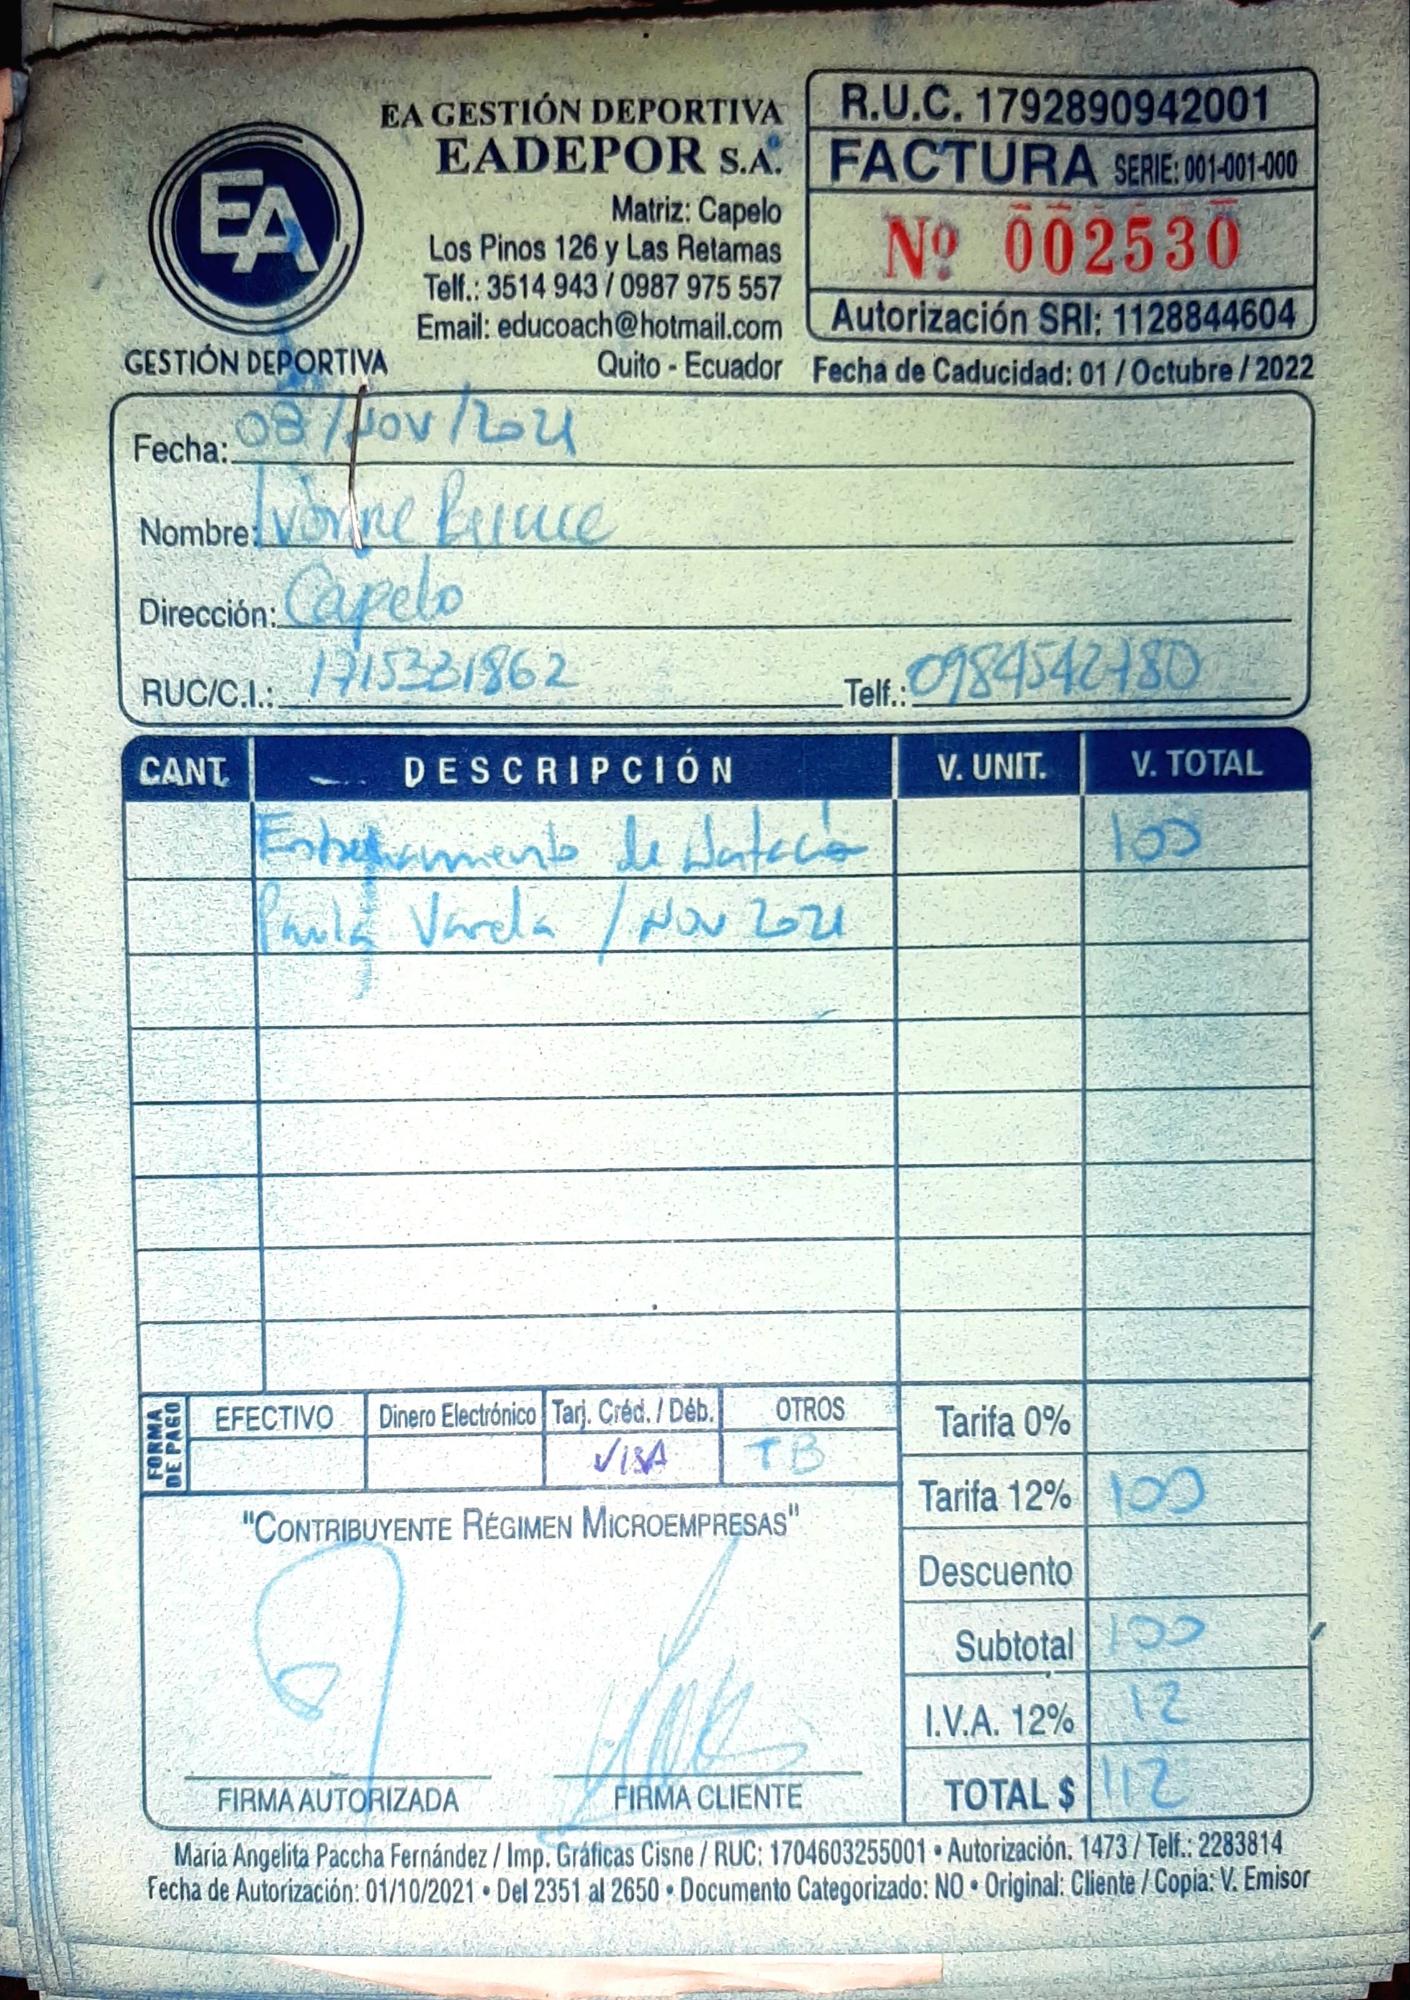 EA GESTIÓN DEPORTIVA
EADEPOR S.A.
Matriz: Capelo
Los Pinos 126 y Las Retamas
Telf.: 3514 943 / 0987 975 557
Email: educoach@hotmail.com
Quito - Ecuador
EA
GESTIÓN DEPORTIVA
R.U.C. 1792890942001
FACTURA SERIE: 001-001-000
Nº 002530
Autorización SRI: 1128844604
Fecha de Caducidad: 01 / Octubre / 2022
Fecha: 08/Nov/2021
Nombre: Ivonne
Dirección: Capelo
RUC/C.I.: 1715331862 Telf.: 0984542780
CANT. DESCRIPCIÓN V. UNIT. V. TOTAL
Entrenamiento de Natación 100
Paula Varela / Nov 2021
FORMA DE PAGO
EFECTIVO Dinero Electrónico Tarj. Créd. / Déb. OTROS
VISA TB
Tarifa 0%
Tarifa 12% 100
Descuento
Subtotal 100
I.V.A. 12% 12
TOTAL $ 112
"CONTRIBUYENTE RÉGIMEN MICROEMPRESAS"
FIRMA AUTORIZADA FIRMA CLIENTE
María Angelita Paccha Fernández / Imp. Gráficas Cisne / RUC: 1704603255001 • Autorización. 1473 / Telf.: 2283814
Fecha de Autorización: 01/10/2021 • Del 2351 al 2650 • Documento Categorizado: NO • Original: Cliente / Copia: V. Emisor